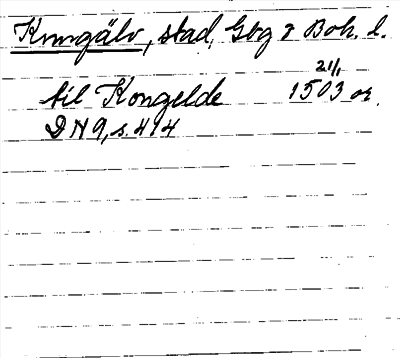 Kungälv, stad, Gbg o Boh. l.
til Kongelde 21/1 1503 or.
DN 9, s. 414